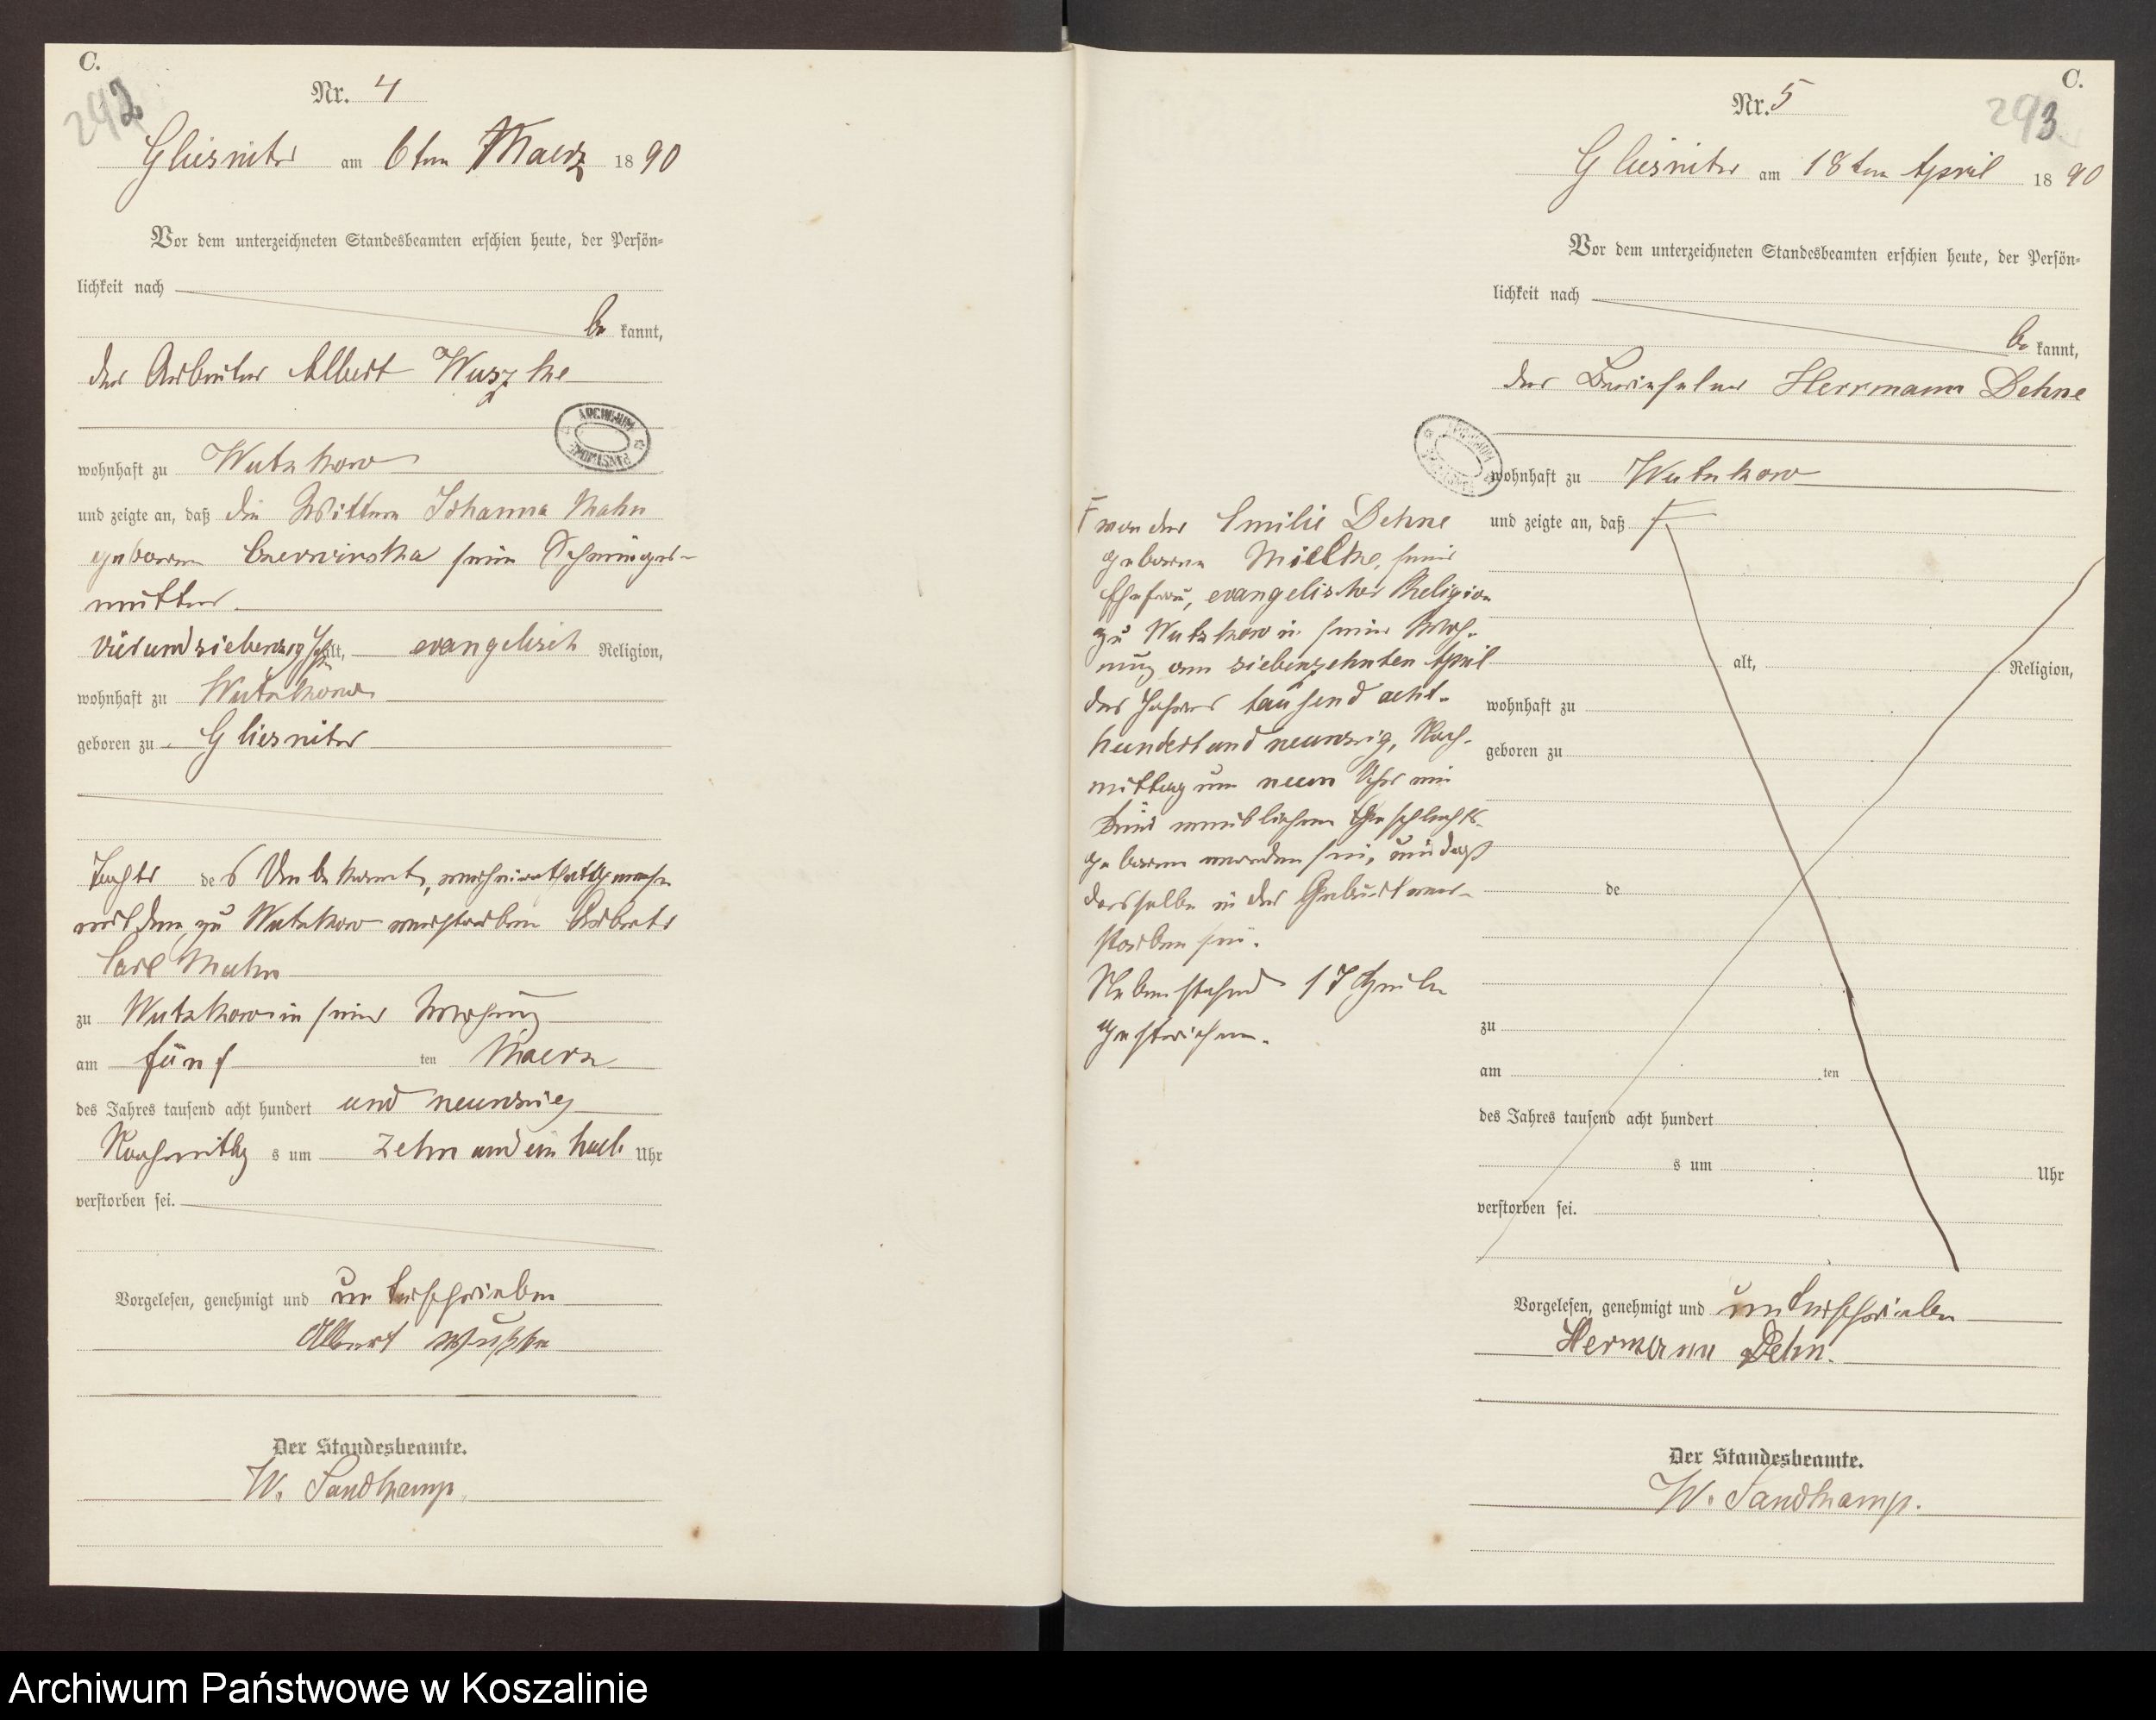 C.
292
Nr. 4
Gliesnitz am 6ten Maerz 1890
Vor dem unterzeichneten Standesbeamten erschien heute, der Persön-
lichkeit nach
be kannt,
der Arbeiter Albert Wuszke
ARCHIWUM PAŃSTWOWE
wohnhaft zu Wutzkow
und zeigte an, daß die Wittwe Johanna Mahn
geborene Czerwinska seine Schwieger-
mutter
vierundsiebenzig Jahr alt, evangelisch Religion,
wohnhaft zu Wutzkow
geboren zu Gliesnitz
Tochter des Unbekannt, verheirathet gewesen
mit dem zu Wutzkow verstorbenen Arbeiter
Carl Mahn
zu Wutzkow in seiner Wohnung
am fünf ten Maerz
des Jahres tausend acht hundert und neunzig
Nachmittag s um zehn und ein halb Uhr
verstorben sei.
Vorgelesen, genehmigt und unterschrieben
Albert Wußke
Der Standesbeamte.
W. Sandkamp.
C.
293
Nr. 5
Gliesnitz am 18ten April 1890
Vor dem unterzeichneten Standesbeamten erschien heute, der Persön-
lichkeit nach
be kannt,
der Herrmann Dehne
wohnhaft zu Wutzkow
und zeigte an, daß
von der Emilie Dehne
geborene Mielke, seiner
Ehefrau, evangelischer Religion
zu Wutzkow in seiner Woh-
nung am siebenzehnten April
des Jahres tausend acht-
hundert und neunzig, Nach-
mittag um neun Uhr ein
Kind weiblichen Geschlechts
geboren worden sei, und daß
dasselbe in der Geburt ver-
storben sei.
Nebenstehend 17 Zeilen
gestrichen.
alt, Religion,
wohnhaft zu
geboren zu
de
zu
am ten
des Jahres tausend acht hundert
s um Uhr
verstorben sei.
Vorgelesen, genehmigt und unterschrieben
Hermann Dehn.
Der Standesbeamte.
W. Sandkamp.
Archiwum Państwowe w Koszalinie